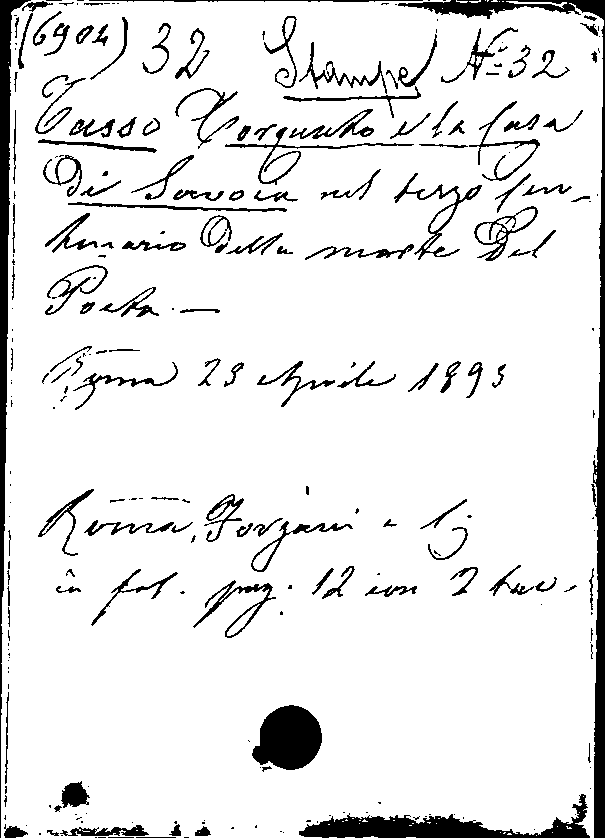 (6904) 32 Stampe N.º 32
Tasso Torquato e la Casa
Di Savoia nel terzo Cen-
tenario Della morte Del
Poeta. —
Roma 25 Aprile 1895
Roma, Forzani e C;
in fol. pag. 12 con 2 tav.